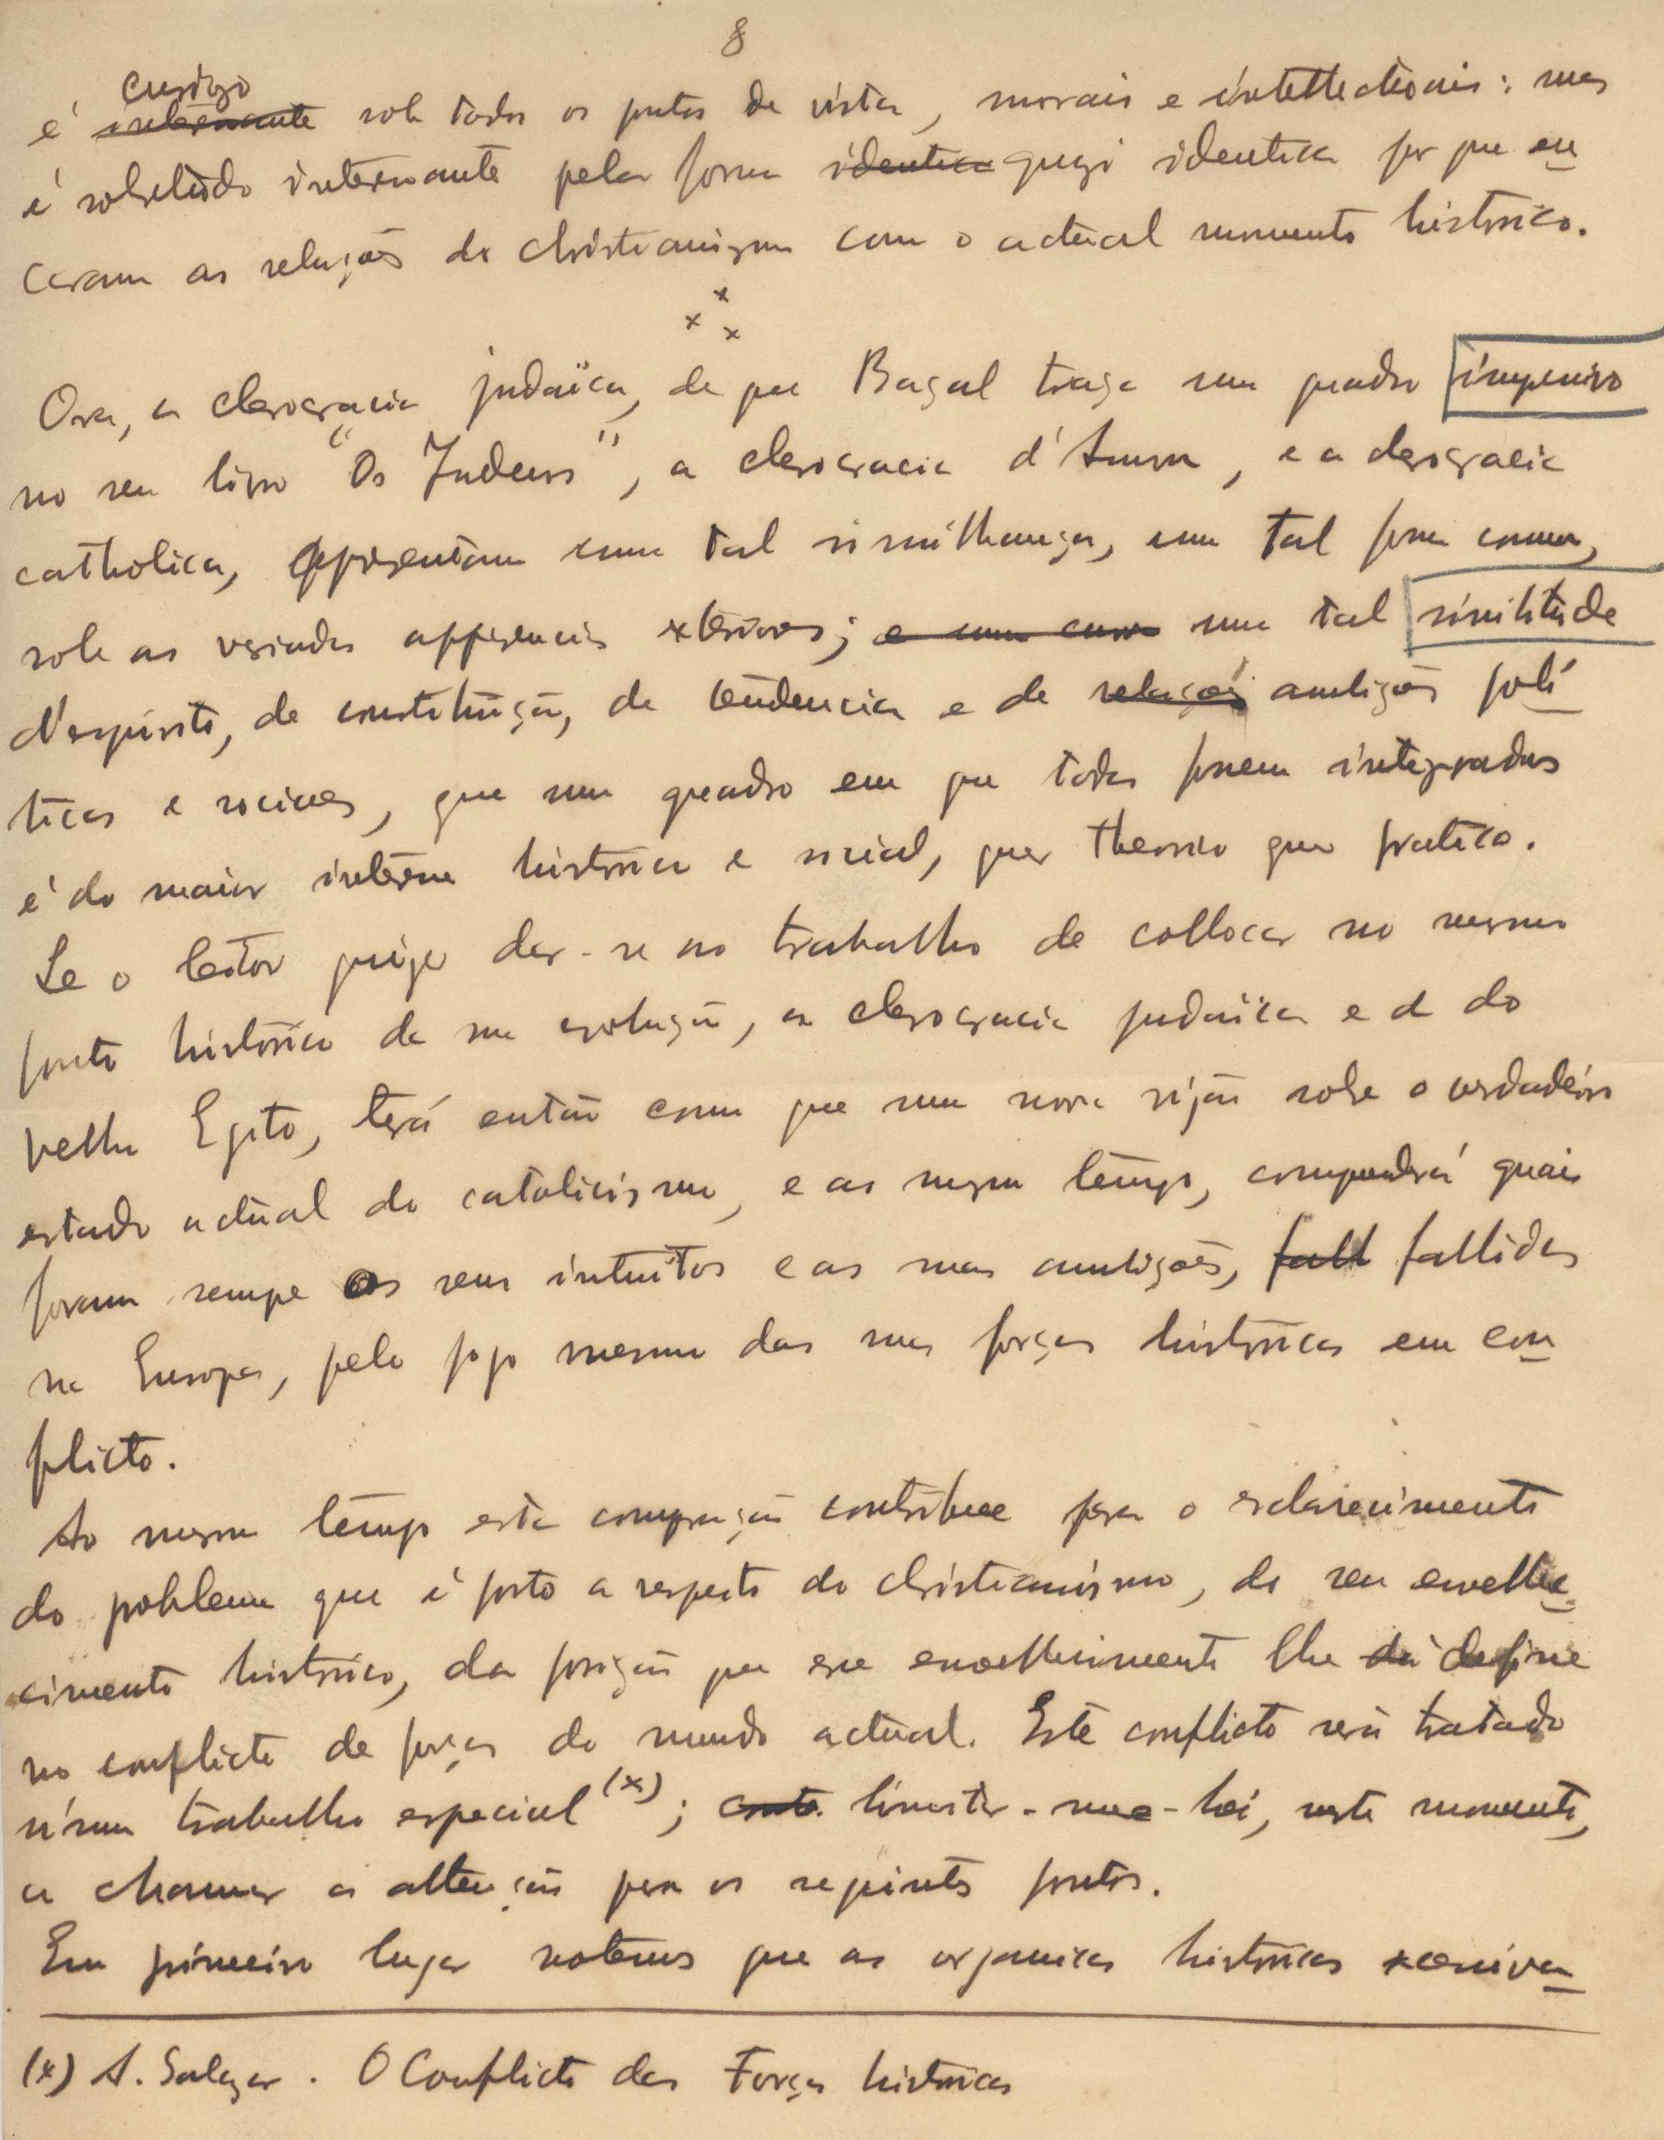 8
curioso
é interessante sob todos os pontos de vista, morais e intellectuais: mas
é sobretudo interessante pela forma identica quasi identica por que en
caram as relações do christianismo com o actual momento historico.
x x x
Ora, a clerocracia judaïca, de que Bazal traça um quadro
no seu livro "Os Judeus", a clerocracia d'Amon, e a clerocracia
catholica, apresentam uma tal similhança, um tal fundo commum,
sob as variadas apparencias exteriores; e uma uma tal similitude
d'espirito, de constituição, de tendencia e de relações ambições poli
ticas e sociaes, que um quadro em que todas fossem integradas
é do maior interesse historico e social, quer theorico quer pratico.
Se o leitor quizer dar-se ao trabalho de collocar no mesmo
ponto historico da sua evolução, a clerocracia judaïca e a do
velho Egito, terá então como que uma nova visão sobre o verdadeiro
estado actual do catolicismo, e ao mesmo tempo, comprenderá quais
foram sempre os seus intuitos e as suas ambições, fall fallidas
na Europa, pelo jogo mesmo das suas forças historicas em con
flicto.
Ao mesmo tempo esta comparação contribue para o esclarecimento
do problema que é posto a respeito do christianismo, do seu envelhe
cimento historico, da posição que esse envelhecimento lhe dá define
no conflicto de forças do mundo actual. Este conflicto será tratado
n'um trabalho especial (x); limitar-me-hei, neste momento,
a chamar a attenção para os seguintes pontos.
Em primeiro lugar notemos que as organicas historicas
(x) A. Salazar. O Conflicto das Forças historicas